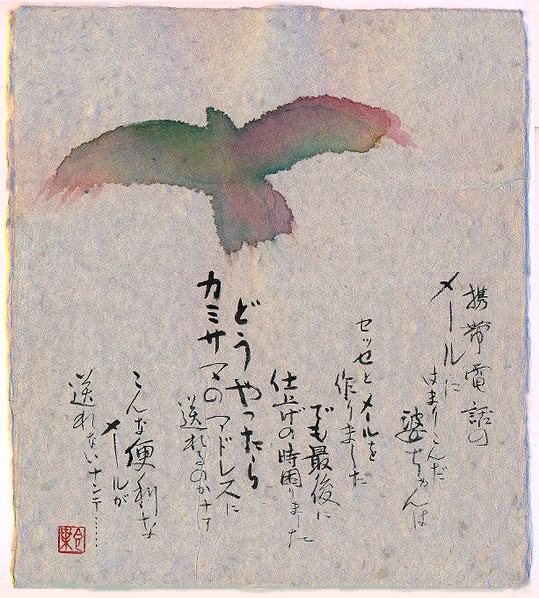 携帯電話の
メールに
はまりこんだ
婆ちゃんは
セッセとメールを
作りました
でも最後に
仕上げの時困りました
どうやったら
カミサマのアドレスに
送れるのかナァ
こんな便利な
メールが
送れないナンテ……